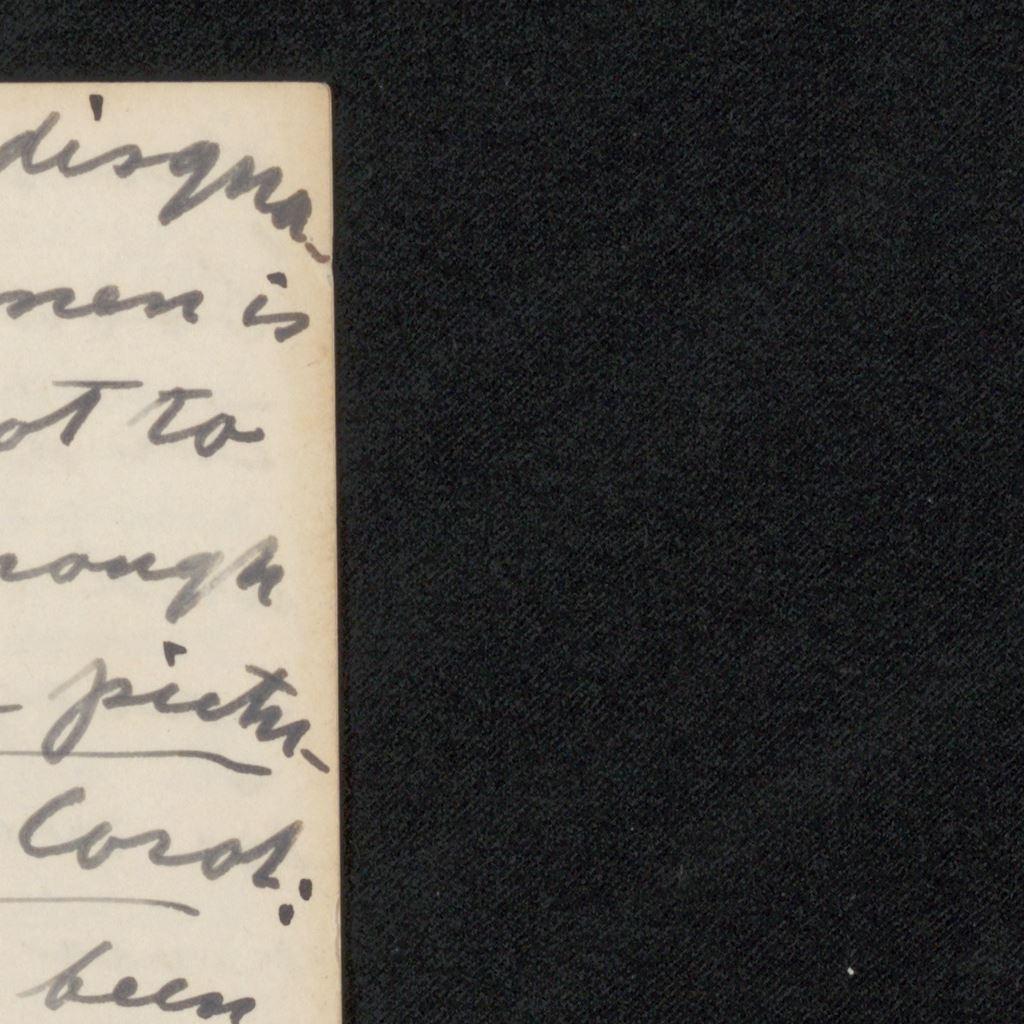 disqua-
men is
ot to
rough
pictu-
Corot;
been